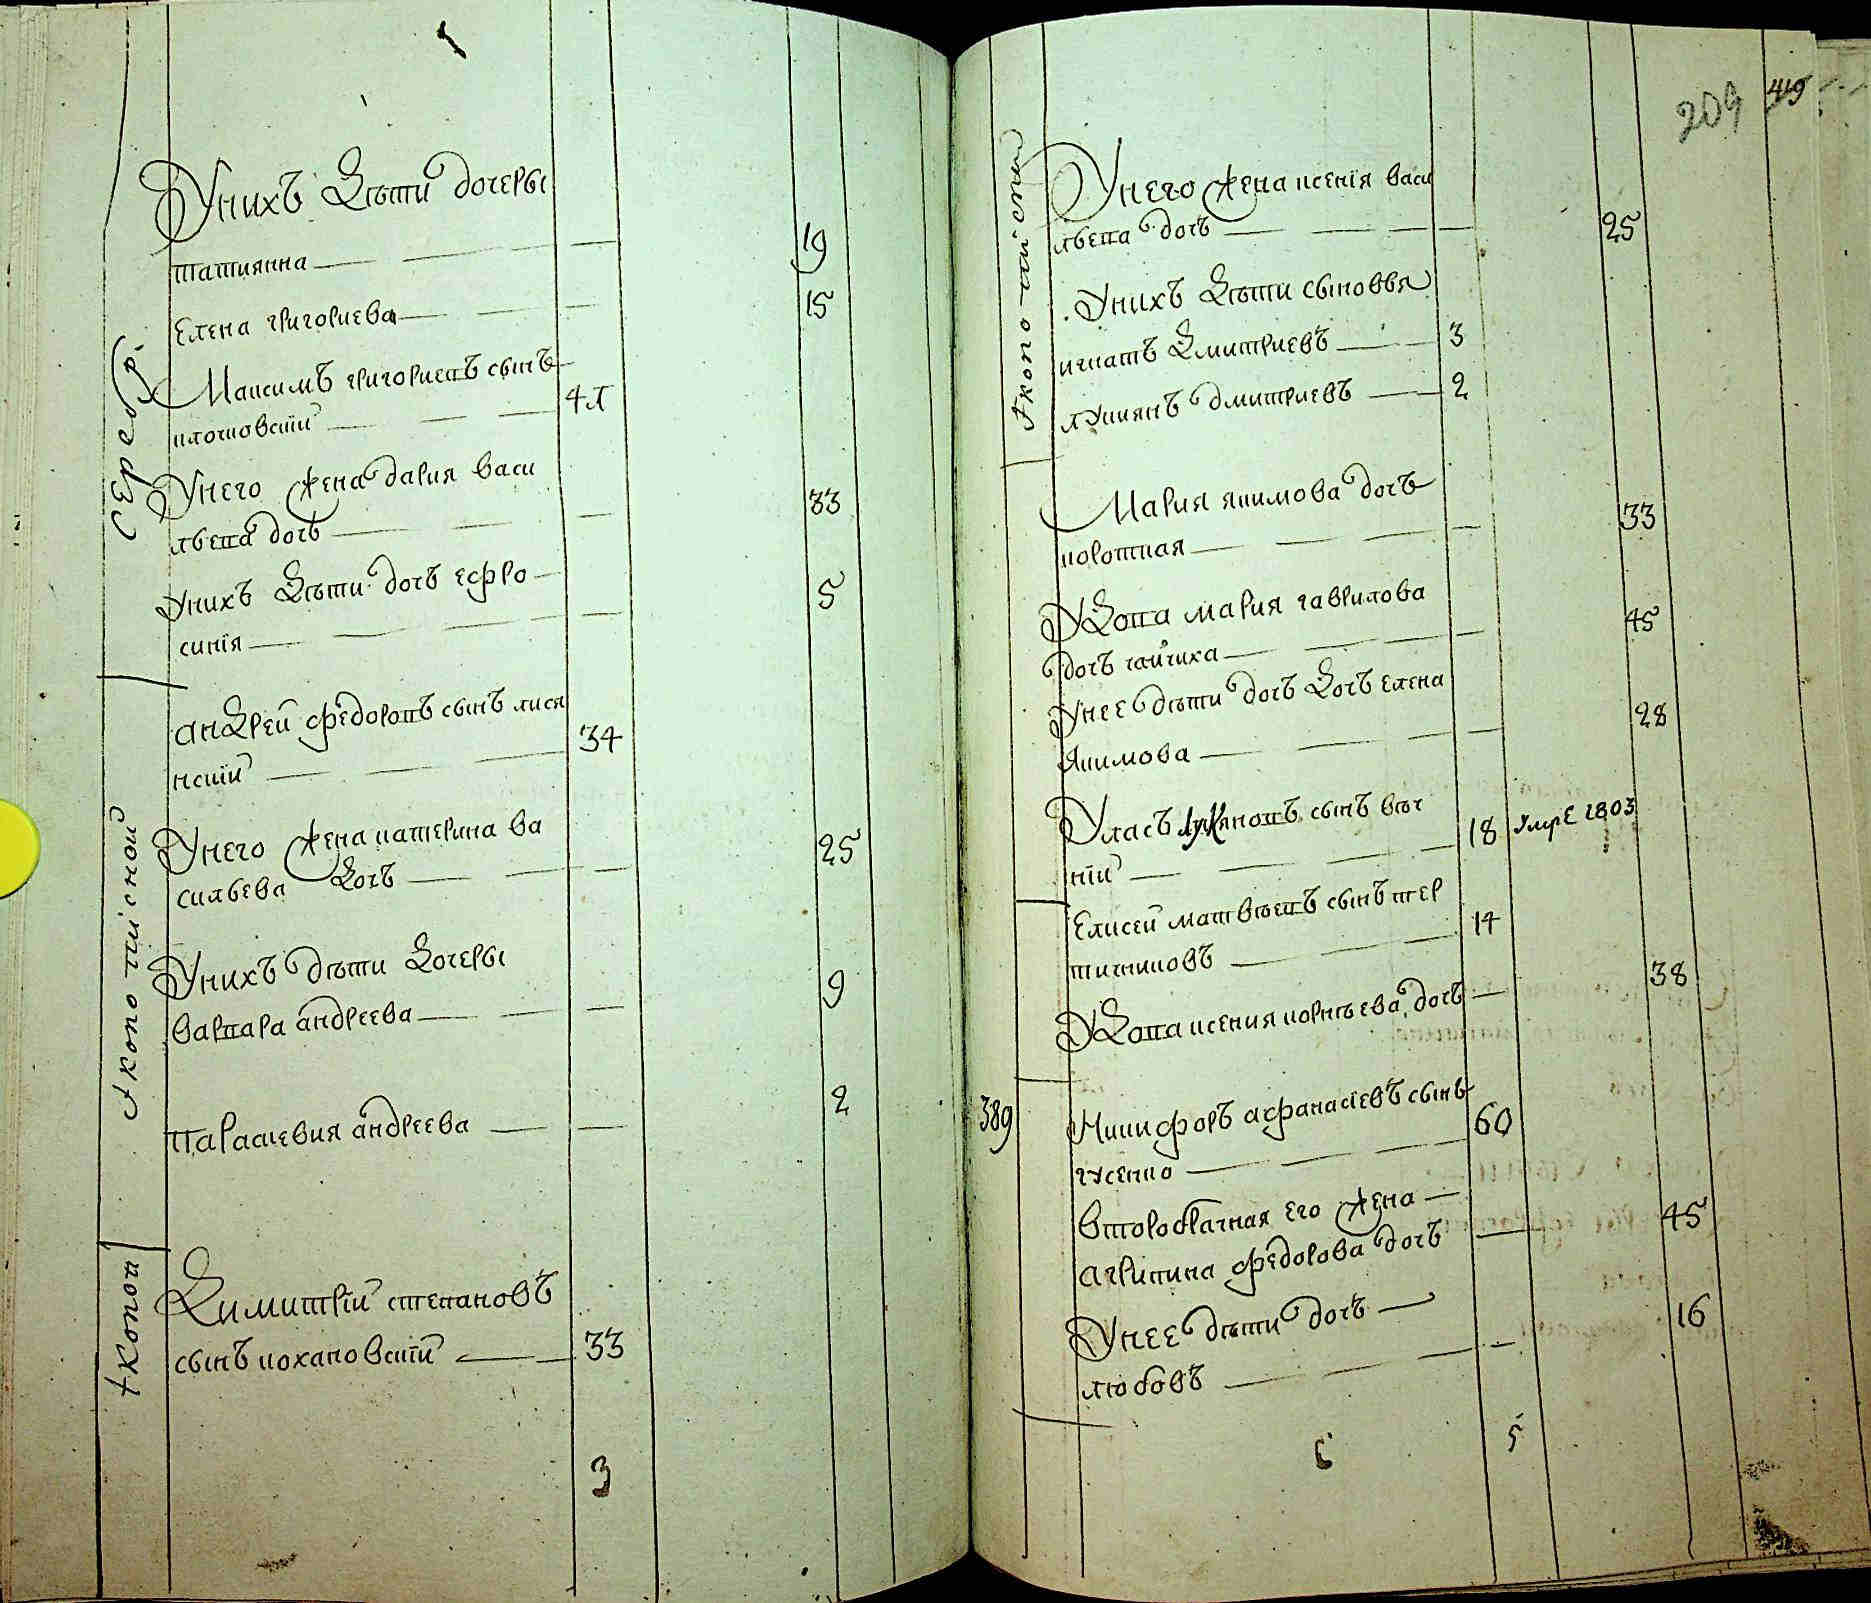 Унихъ Дѣти дочеры
татиянна — 19
Елена григориева — 15
Максимъ григориевъ сынъ
клочковский — 4л
Унего жена дария васи
льева дочь — 33
Унихъ Дѣти дочь ефро
синія — 5
андрей федоровъ сынъ лися
нский — 34
Унего жена катерина ва
сильева Дочь — 25
Унихъ дѣти Дочеры
варвара андреева — 9
параскевия андреева — 2
Димитрій степановъ
сынъ кохановский — 33
3
209 419
Унего жена ксенія васи
льева дочь — 25
Унихъ Дѣти сыновья
игнатъ Дмитриевъ — 3
лукиянъ дмитриевъ — 2
Мария якимова дочь
короткая — 33
УДова мария гаврилова
дочь — 45
Унее дѣти дочь Дочь елена
Якимова — 28
Уласъ сынъ
ній — 18 умре 1803
Елисей матвѣевъ сынъ пер
тичниковъ — 14
УДова ксения корнѣева дочь — 38
389 Никифоръ афанасіевъ сынъ
гусенко — 60
второбрачная его жена —
агрипина федорова дочь — 45
Унее дѣти дочь —
любовъ — 16
5